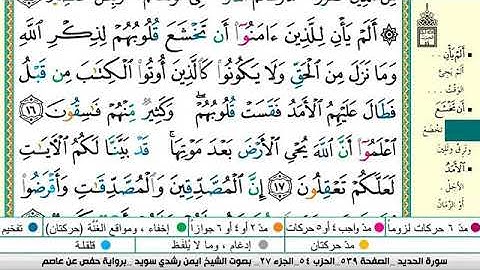 ۞ أَلَمْ يَأْنِ لِلَّذِينَ ءَامَنُوٓا۟ أَن تَخْشَعَ قُلُوبُهُمْ لِذِكْرِ ٱللَّهِ
وَمَا نَزَلَ مِنَ ٱلْحَقِّ وَلَا يَكُونُوا۟ كَٱلَّذِينَ أُوتُوا۟ ٱلْكِتَٰبَ مِن قَبْلُ
فَطَالَ عَلَيْهِمُ ٱلْأَمَدُ فَقَسَتْ قُلُوبُهُمْ ۖ وَكَثِيرٌ مِّنْهُمْ فَٰسِقُونَ ١٦
ٱعْلَمُوٓا۟ أَنَّ ٱللَّهَ يُحْىِ ٱلْأَرْضَ بَعْدَ مَوْتِهَا ۚ قَدْ بَيَّنَّا لَكُمُ ٱلْءَايَٰتِ
لَعَلَّكُمْ تَعْقِلُونَ ١٧ إِنَّ ٱلْمُصَّدِّقِينَ وَٱلْمُصَّدِّقَٰتِ وَأَقْرَضُوا۟
أَلَمْ يَأْنِ
أَلَمْ يَجِئْ
الوَقْتُ
أَن تَخْشَعَ
تَخْضَعَ
وَتَرِقَّ وَتَلِينَ
الْأَمَدُ
الأَجَلُ
أو الزَّمَانُ
مدّ ٦ حركات لزوماً
مدّ واجب ٤ أو ٥ حركات
مدّ ٢ أو ٤ أو ٦ جوازاً
إخفاء، ومواقع الغُنَّة (حركتان)
تفخيم
مدّ حركتان
إدغام، وما لا يُلفَظ
قلقلة
سورة الحديد _ الصفحة ٥٣٩ _ الحزب ٥٤ _ الجزء ٢٧ _ بصوت الشيخ ايمن رشدي سويد _ برواية حفص عن عاصم